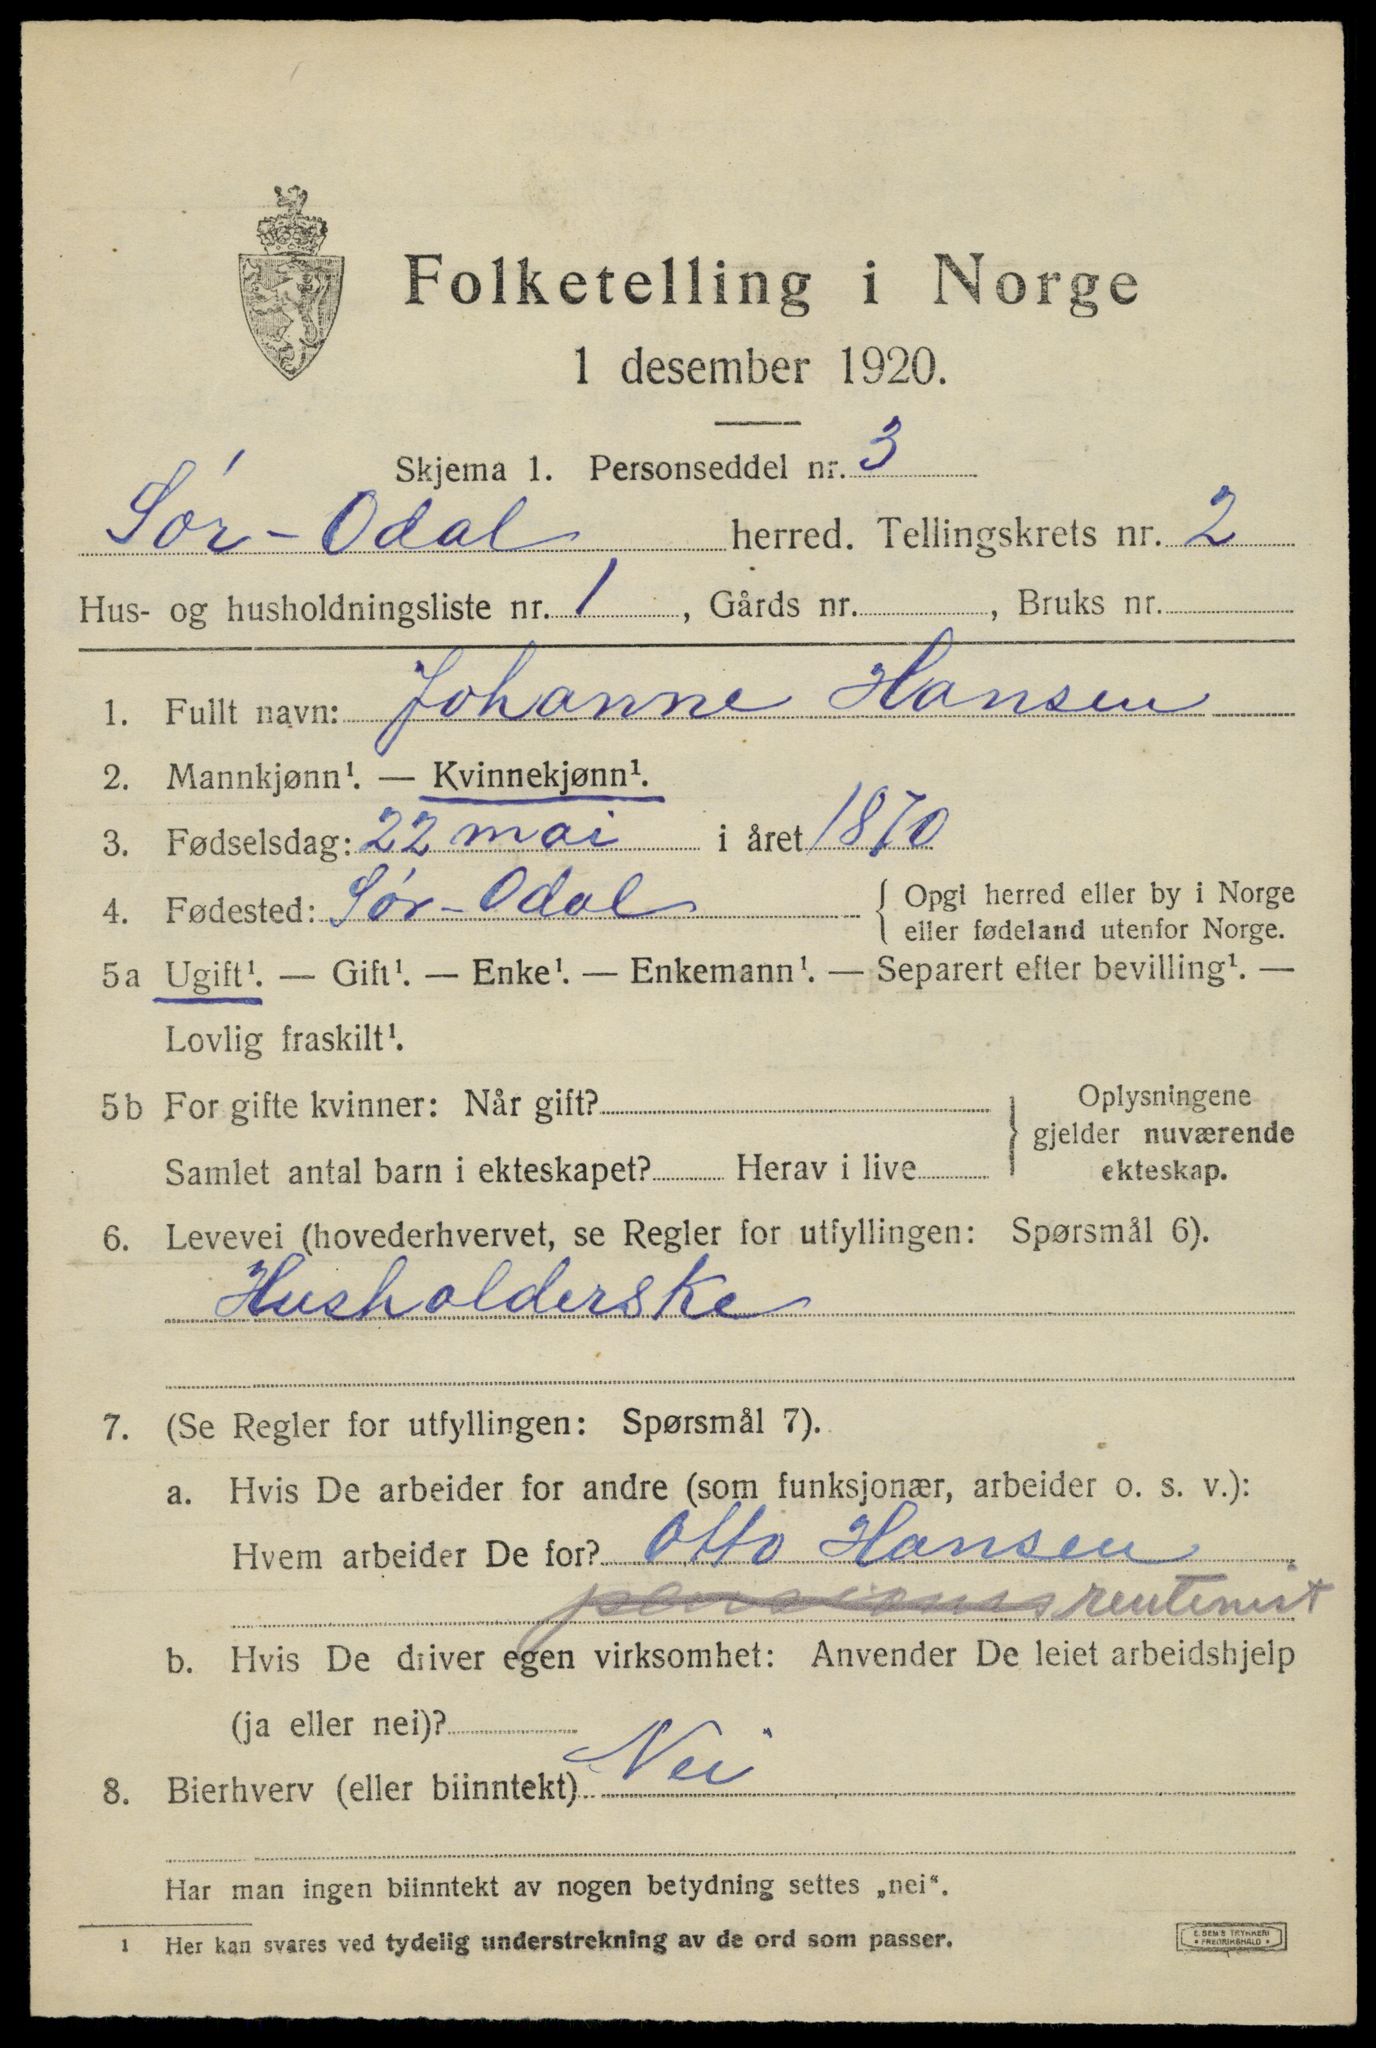 Folketelling i Norge
1 desember 1920.
Skjema 1. Personseddel nr. 3
Sór-Odal herred. Tellingskrets nr. 2
Hus- og husholdningsliste nr. 1, Gårds nr. , Bruks nr.
1. Fullt navn: Johanne Hansen
2. Mannkjønn¹. — Kvinnekjønn¹.
3. Fødselsdag: 22 mai i året 1870
4. Fødested: Sór-Odal { Opgi herred eller by i Norge
eller fødeland utenfor Norge.
5a Ugift¹. — Gift¹. — Enke¹. — Enkemann¹. — Separert efter bevilling¹. —
Lovlig fraskilt¹.
5b For gifte kvinner: Når gift? } Oplysningene
gjelder nuværende
Samlet antal barn i ekteskapet? Herav i live ekteskap.
6. Levevei (hovederhvervet, se Regler for utfyllingen: Spørsmål 6).
Husholderske
7. (Se Regler for utfyllingen: Spørsmål 7).
a. Hvis De arbeider for andre (som funksjonær, arbeider o. s. v.):
Hvem arbeider De for? Otto Hansen
rentenist
b. Hvis De driver egen virksomhet: Anvender De leiet arbeidshjelp
(ja eller nei)?
8. Bierhverv (eller biinntekt) Nei
Har man ingen biinntekt av nogen betydning settes „nei“.
1 Her kan svares ved tydelig understrekning av de ord som passer.
E. SEM'S TRYKKERI
• FREDRIKSHALD •